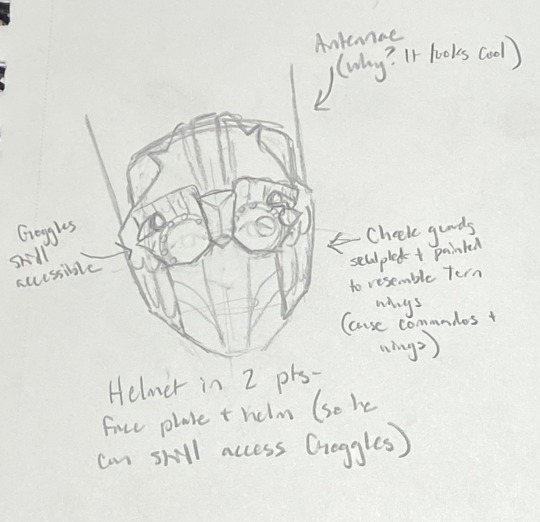 Antennae
(why? It looks cool)
Goggles
still
accessible
Cheek guards
sculpted + painted
to resemble Tern
wings
(cause commandos +
wings)
Helmet in 2 pts-
Face plate + helm (so he
can still access Goggles)